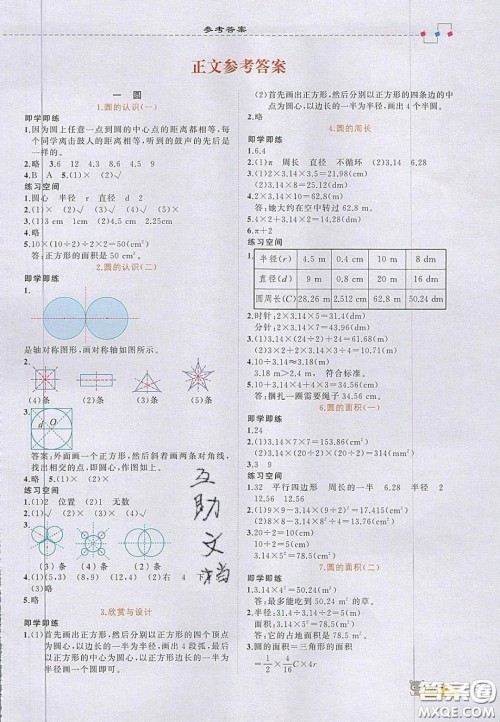 参考答案
正文参考答案
一 圆
1.圆的认识(一)
即学即练
1.因为圆上任意一点到圆的中心点的距离都相等,每个同学击鼓人的距离相等,听到的鼓声的先后是一样的。
2.略 3.6 12 4.3 8.6 4.9
4.B A 5.(1)× (2)√
练习空间
1.圆心 半径 r 直径 d 2
2.(1)√ (2)× (3)√ (4)√ (5)×
3.(1)3 cm 1cm (2)1 cm 4.5 cm
4.略
5.10×(10÷2)÷2×2=50(cm²)
答:正方形的面积是 50 cm²。
2.圆的认识(二)
即学即练
1.
是轴对称图形,画对称轴如图所示。
2.
(2) (4) (5)
3.
d O
答案:外面画一个正方形,然后斜着画两条对角线,找出相交的点,即圆心,作图如图。
4.略 5.(1)× (2)×
练习空间
1.(1)2 位置 (2)1 无数
2.
(3)条 (4)条 (2)条
4.(1)(5,3) (8,9) (12,4) (2)右 4 下 4
5.略
3.欣赏与设计
即学即练
1.(1)首先画出正方形,然后分别以正方形的四个顶点为圆心,以边长的一半为半径,画出 4段弧,最后以正方形的中心为圆心,以正方形边长的一半为半径画出一个圆。
(2)首先画出正方形,然后分别以正方形的四条边的中点为圆心,以边长的一半为半径,画出 4 个半圆。
2.略
4.圆的周长
即学即练
1.6.4
2.(1)π 周长 直径 不循环 (2)3.14
3.2×3.14×3.5=21.98(cm)
4.2×3.14×10=62.8(m)
答:她大约在空中转过 62.8 m。
5.4×2+3.14×4×2÷2=20.56
6.π+2
练习空间
1.
半径(r) 4.5 m 0.4 cm 10 m 8 dm
直径(d) 9 m 0.8 cm 20 m 16 dm
圆周长(C) 28.26 m 2.512 cm 62.8 m 50.24 dm
2.时针:2×3.14×5=31.4(cm)
分针:2×3.14×7=43.96(cm)
3.(1)3.14×(12÷2)+24÷2=30.84(cm)
(2)3.14×24÷2=37.68(cm)
4.2×3.14×3=18.84(cm)
3.18 m>2.14 m 符合标准。
5.3.14×6+3×6=36.84(cm)
答:捆扎一圈需要绳子 36.84 cm。
6.圆的面积(一)
即学即练
1.24
2.(1)3.14×7×7=153.86(cm²)
(2)3.14×(10÷2)²=78.5(cm²)
3.3 9
练习空间
1.32 平行四边形 周长的一半 6.28 半径 2
12.56 12.56
2.(1)9×9×3.14=254.34(cm²)
(2)3.14×(10÷2)²=78.5(dm²)
3.14×5²=78.5(cm²)
7.圆的面积(二)
即学即练
1.3.14×4²=50.24(m²)
答:最多能吃到 50.24 m² 的草。
2.31.4÷3.14÷2=5(m)
3.14×5²=78.5(m²)
答:它的占地面积是 78.5 m²。
3.圆的面积=三角形的面积
=1/2×4/16 C×4r
互助文档
答案圈
MXQE.COM